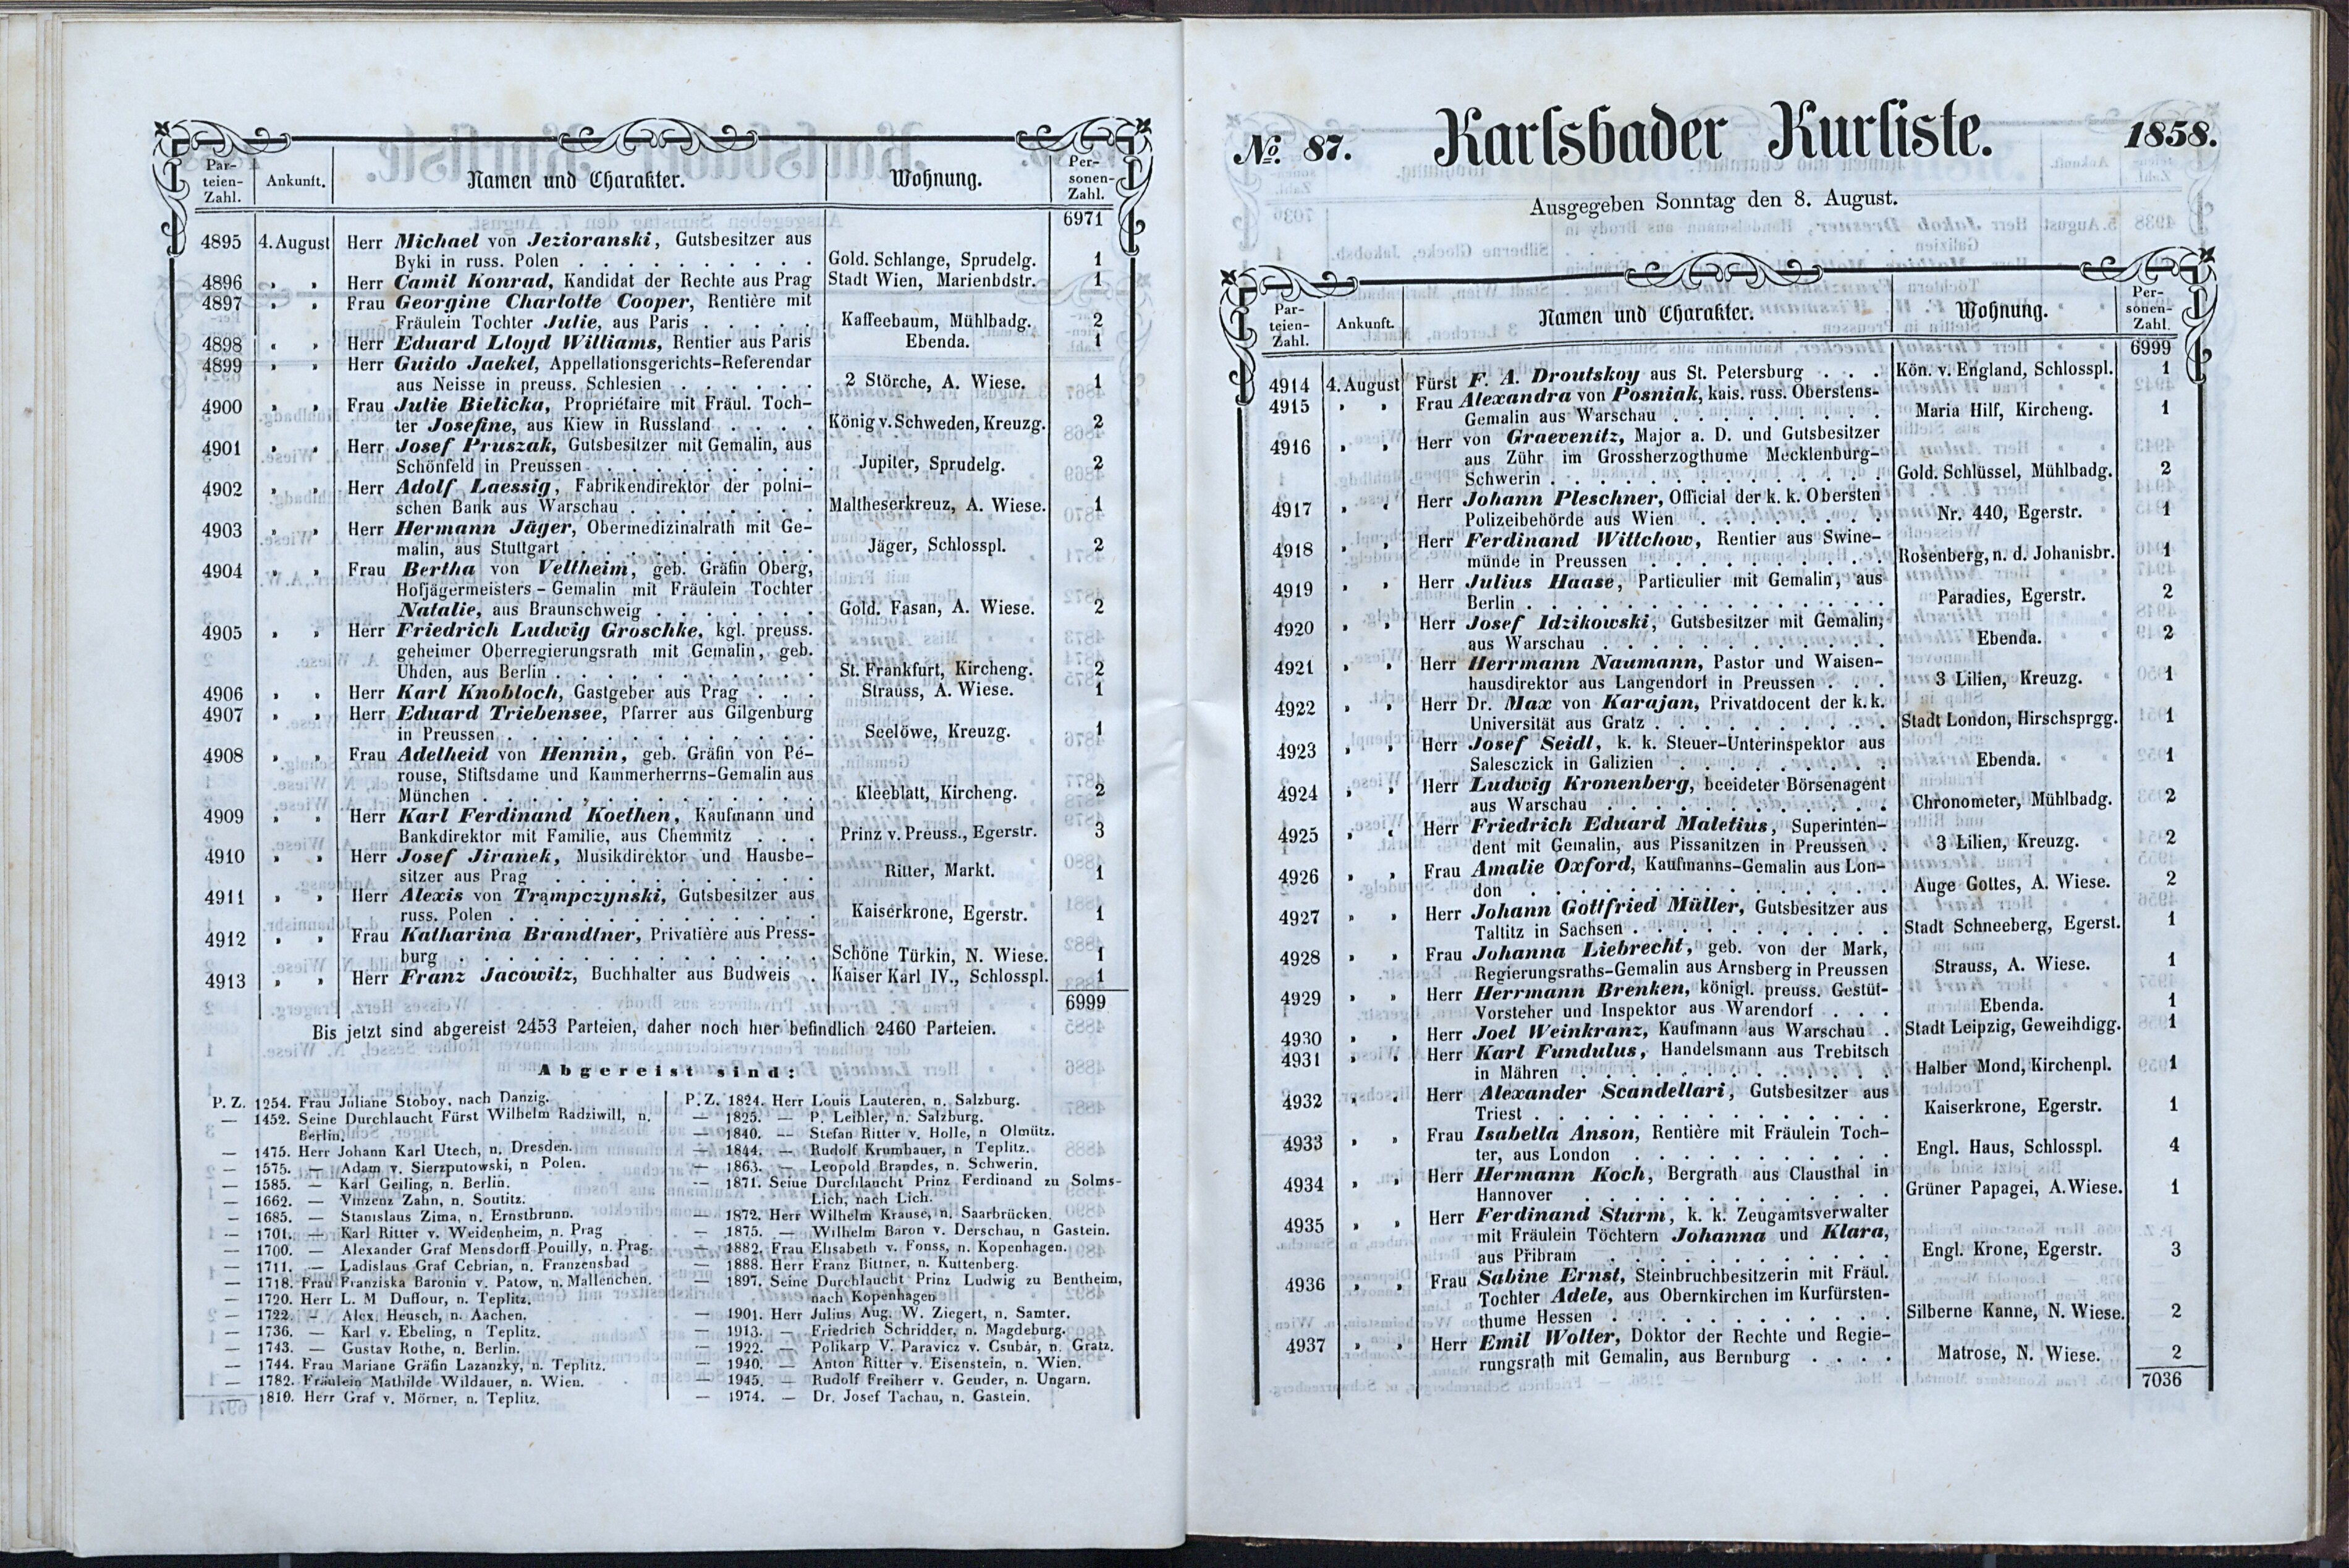 Par-
teien-
Zahl.
Ankunft.
Namen und Charakter.
Wohnung.
Per-
sonen-
Zahl.
6971
4895 4. August Herr Michael von Jezioranski, Gutsbesitzer aus
Byki in russ. Polen . . . . . . . . . . Gold. Schlange, Sprudelg. 1
4896 » » Herr Camil Konrad, Kandidat der Rechte aus Prag Stadt Wien, Marienbdstr. 1
4897 » » Frau Georgine Charlotte Cooper, Rentière mit
Fräulein Tochter Julie, aus Paris . . . . . Kaffeebaum, Mühlbadg. 2
4898 « » Herr Eduard Lloyd Williams, Rentier aus Paris Ebenda. 1
4899 » » Herr Guido Jaekel, Appellationsgerichts-Referendar
aus Neisse in preuss. Schlesien . . . . . . 2 Störche, A. Wiese. 1
4900 » » Frau Julie Bielicka, Propriétaire mit Fräul. Toch-
ter Josefine, aus Kiew in Russland . . . . König v. Schweden, Kreuzg. 2
4901 » » Herr Josef Pruszak, Gutsbesitzer mit Gemalin, aus
Schönfeld in Preussen . . . . . . . . . Jupiter, Sprudelg. 2
4902 » » Herr Adolf Laessig, Fabrikendirektor der polni-
schen Bank aus Warschau . . . . . . . . Maltheserkreuz, A. Wiese. 1
4903 » » Herr Hermann Jäger, Obermedizinalrath mit Ge-
malin, aus Stuttgart . . . . . . . . . . Jäger, Schlosspl. 2
4904 » » Frau Bertha von Veltheim, geb. Gräfin Oberg,
Hofjägermeisters-Gemalin mit Fräulein Tochter
Natalie, aus Braunschweig . . . . . . . Gold. Fasan, A. Wiese. 2
4905 » » Herr Friedrich Ludwig Groschke, kgl. preuss.
geheimer Oberregierungsrath mit Gemalin, geb.
Uhden, aus Berlin . . . . . . . . . . . St. Frankfurt, Kircheng. 2
4906 » » Herr Karl Knobloch, Gastgeber aus Prag . . . Strauss, A. Wiese. 1
4907 » » Herr Eduard Triebensee, Pfarrer aus Gilgenburg
in Preussen . . . . . . . . . . . . . Seelöwe, Kreuzg. 1
4908 » » Frau Adelheid von Hennin, geb. Gräfin von Pé-
rouse, Stiftsdame und Kammerherrns-Gemalin aus
München . . . . . . . . . . . . . . Kleeblatt, Kircheng. 2
4909 » » Herr Karl Ferdinand Koethen, Kaufmann und
Bankdirektor mit Familie, aus Chemnitz . . . Prinz v. Preuss., Egerstr. 3
4910 » » Herr Josef Jiranek, Musikdirektor und Hausbe-
sitzer aus Prag . . . . . . . . . . . . Ritter, Markt. 1
4911 » » Herr Alexis von Trąmpczynski, Gutsbesitzer aus
russ. Polen . . . . . . . . . . . . . Kaiserkrone, Egerstr. 1
4912 » » Frau Katharina Brandtner, Privatière aus Press-
burg . . . . . . . . . . . . . . . Schöne Türkin, N. Wiese. 1
4913 » » Herr Franz Jacowitz, Buchhalter aus Budweis . Kaiser Karl IV., Schlosspl. 1
6999
Bis jetzt sind abgereist 2453 Parteien, daher noch hier befindlich 2460 Parteien.
Abgereist sind:
P. Z. 1254. Frau Juliane Stoboy, nach Danzig.
— 1452. Seine Durchlaucht Fürst Wilhelm Radziwill, n.
Berlin.
— 1475. Herr Johann Karl Utech, n. Dresden.
— 1575. — Adam v. Sierzputowski, n Polen.
— 1585. — Karl Geiling, n. Berlin.
— 1662. — Vinzenz Zahn, n. Soutitz.
— 1685. — Stanislaus Zima, n. Ernstbrunn.
— 1701. — Karl Ritter v. Weidenheim, n. Prag
— 1700. — Alexander Graf Mensdorff Pouilly, n. Prag.
— 1711. — Ladislaus Graf Cebrian, n. Franzensbad
— 1718. Frau Franziska Baronin v. Patow, n. Mallenchen.
— 1720. Herr L. M Duflour, n. Teplitz.
— 1722. — Alex. Heusch, n. Aachen.
— 1736. — Karl v. Ebeling, n Teplitz.
— 1743. — Gustav Rothe, n. Berlin.
— 1744. Frau Mariane Gräfin Lazanzky, n. Teplitz.
— 1782. Fräulein Mathilde Wildauer, n. Wien.
— 1810. Herr Graf v. Mörner, n. Teplitz.
P. Z. 1824. Herr Louis Lauteren, n. Salzburg.
— 1825. — P. Leibler, n. Salzburg.
— 1840. — Stefan Ritter v. Holle, n Olmütz.
— 1844. — Rudolf Krumbauer, n Teplitz.
— 1863. — Leopold Brandes, n. Schwerin.
— 1871. Seine Durchlaucht Prinz Ferdinand zu Solms-
Lich, nach Lich.
— 1872. Herr Wilhelm Krause, n. Saarbrücken.
— 1875. — Wilhelm Baron v. Derschau, n Gastein.
— 1882. Frau Elisabeth v. Fonss, n. Kopenhagen.
— 1888. Herr Franz Bittner, n. Kuttenberg.
— 1897. Seine Durchlaucht Prinz Ludwig zu Bentheim,
nach Kopenhagen
— 1901. Herr Julius Aug. W. Ziegert, n. Samter.
— 1913. — Friedrich Schridder, n. Magdeburg.
— 1922. — Polikarp V. Paravicz v. Csubár, n. Gratz.
— 1940. — Anton Ritter v. Eisenstein, n. Wien.
— 1945. — Rudolf Freiherr v. Geuder, n. Ungarn.
— 1974. — Dr. Josef Tachau, n. Gastein.
No. 87. Karlsbader Kurliste. 1858.
Ausgegeben Sonntag den 8. August.
Par-
teien-
Zahl.
Ankunft.
Namen und Charakter.
Wohnung.
Per-
sonen-
Zahl.
6999
4914 4. August Fürst F. A. Droutskoy aus St. Petersburg . . . Kön. v. England, Schlosspl. 1
4915 » » Frau Alexandra von Posniak, kais. russ. Oberstens-
Gemalin aus Warschau . . . . . . . . . Maria Hilf, Kircheng. 1
4916 » » Herr von Graevenitz, Major a. D. und Gutsbesitzer
aus Zühr im Grossherzogthume Mecklenburg-
Schwerin . . . . . . . . . . . . . . Gold. Schlüssel, Mühlbadg. 2
4917 » « Herr Johann Pleschner, Official der k. k. Obersten
Polizeibehörde aus Wien . . . . . . . . Nr. 440, Egerstr. 1
4918 » » Herr Ferdinand Wittchow, Rentier aus Swine-
münde in Preussen . . . . . . . . . . Rosenberg, n. d. Johanisbr. 1
4919 » » Herr Julius Haase, Particulier mit Gemalin, aus
Berlin . . . . . . . . . . . . . . . Paradies, Egerstr. 2
4920 » » Herr Josef Idzikowski, Gutsbesitzer mit Gemalin,
aus Warschau . . . . . . . . . . . . Ebenda. 2
4921 » » Herr Herrmann Naumann, Pastor und Waisen-
hausdirektor aus Langendorf in Preussen . . . 3 Lilien, Kreuzg. 1
4922 » » Herr Dr. Max von Karajan, Privatdocent der k. k.
Universität aus Gratz . . . . . . . . . . Stadt London, Hirschsprgg. 1
4923 » » Herr Josef Seidl, k. k. Steuer-Unterinspektor aus
Salesczick in Galizien . . . . . . . . . Ebenda. 1
4924 » » Herr Ludwig Kronenberg, beeideter Börsenagent
aus Warschau . . . . . . . . . . . . Chronometer, Mühlbadg. 2
4925 » « Herr Friedrich Eduard Maletius, Superinten-
dent mit Gemalin, aus Pissanitzen in Preussen . 3 Lilien, Kreuzg. 2
4926 » » Frau Amalie Oxford, Kaufmanns-Gemalin aus Lon-
don . . . . . . . . . . . . . . . Auge Gottes, A. Wiese. 2
4927 » » Herr Johann Gottfried Müller, Gutsbesitzer aus
Taltitz in Sachsen . . . . . . . . . . . Stadt Schneeberg, Egerst. 1
4928 » » Frau Johanna Liebrecht, geb. von der Mark,
Regierungsraths-Gemalin aus Arnsberg in Preussen Strauss, A. Wiese. 1
4929 » » Herr Herrmann Brenken, königl. preuss. Gestüt-
Vorsteher und Inspektor aus Warendorf . . . Ebenda. 1
4930 » » Herr Joel Weinkranz, Kaufmann aus Warschau . Stadt Leipzig, Geweihdigg. 1
4931 » » Herr Karl Fundulus, Handelsmann aus Trebitsch
in Mähren . . . . . . . . . . . . . Halber Mond, Kirchenpl. 1
4932 » » Herr Alexander Scandellari, Gutsbesitzer aus
Triest . . . . . . . . . . . . . . . Kaiserkrone, Egerstr. 1
4933 » » Frau Isabella Anson, Rentière mit Fräulein Toch-
ter, aus London . . . . . . . . . . . Engl. Haus, Schlosspl. 4
4934 » » Herr Hermann Koch, Bergrath aus Clausthal in
Hannover . . . . . . . . . . . . . Grüner Papagei, A. Wiese. 1
4935 » » Herr Ferdinand Sturm, k. k. Zeugamtsverwalter
mit Fräulein Töchtern Johanna und Klara,
aus Přibram . . . . . . . . . . . . . Engl. Krone, Egerstr. 3
4936 » » Frau Sabine Ernst, Steinbruchbesitzerin mit Fräul.
Tochter Adele, aus Obernkirchen im Kurfürsten-
thume Hessen . . . . . . . . . . . . Silberne Kanne, N. Wiese. 2
4937 » » Herr Emil Wolter, Doktor der Rechte und Regie-
rungsrath mit Gemalin, aus Bernburg . . . . Matrose, N. Wiese. 2
7036